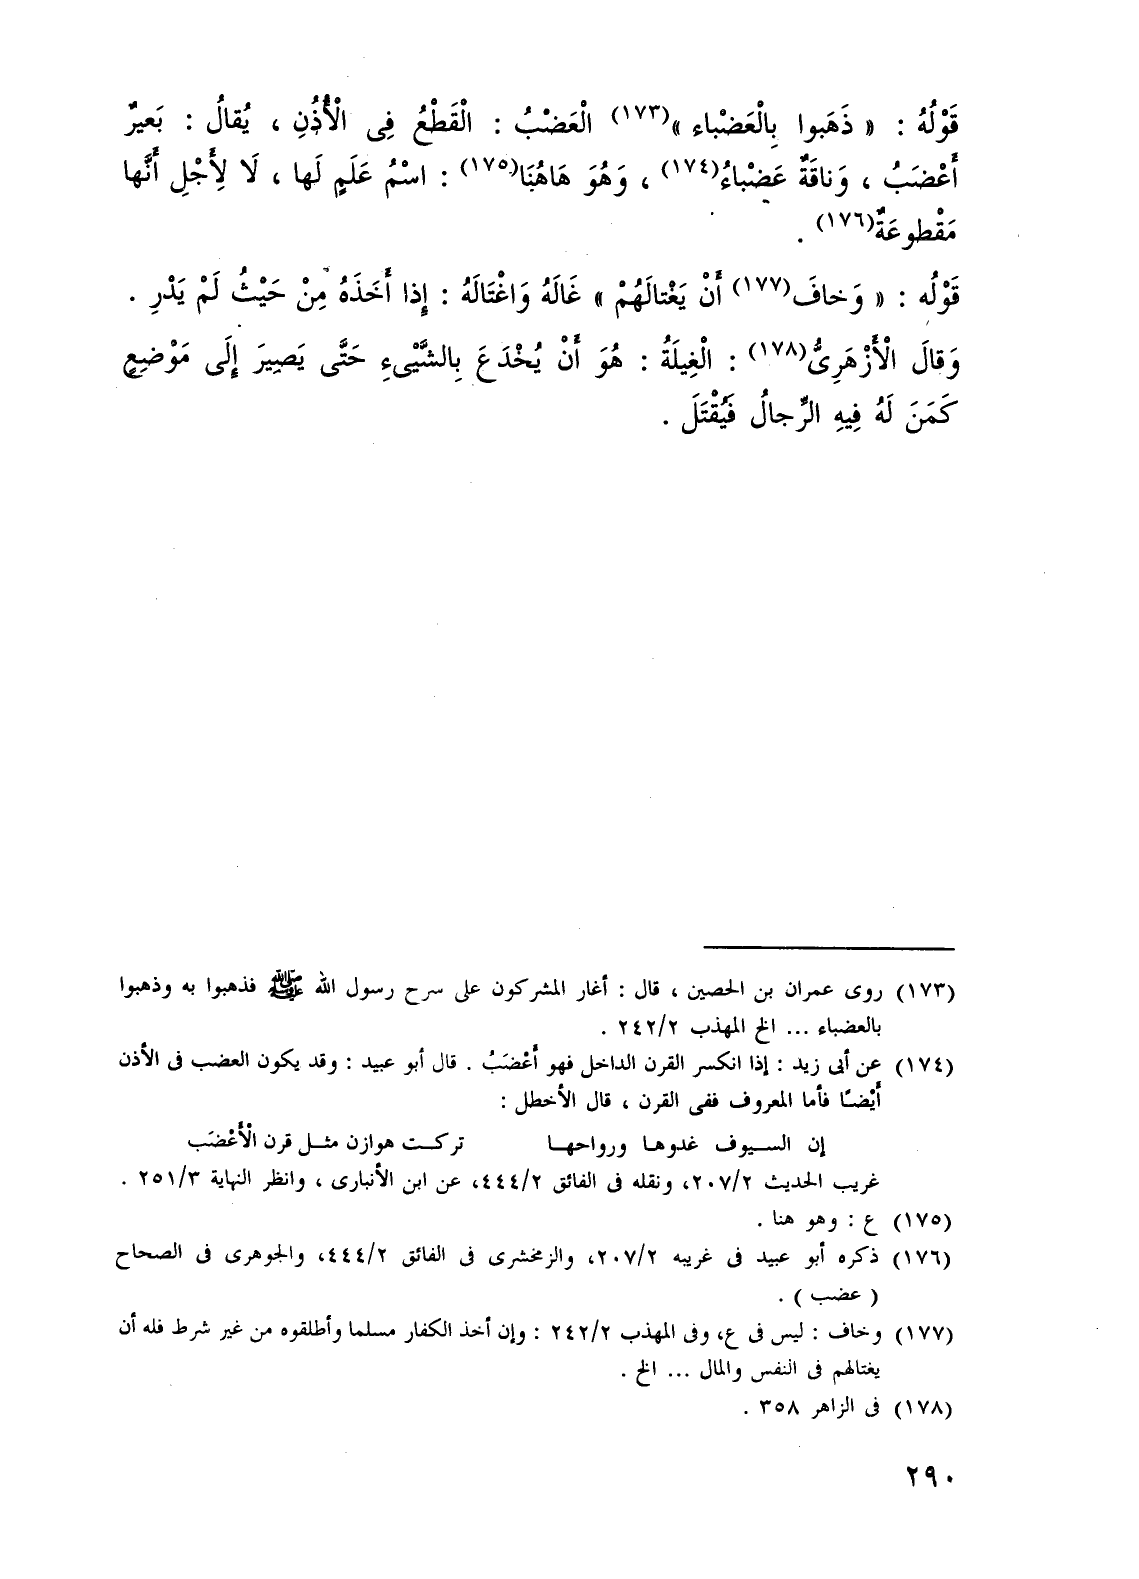 قَوْلُهُ : « ذَهَبوا بِالْعَضْباء »(١٧٣) الْعَضْبُ : الْقَطْعُ فِى الْأُذُنِ ، يُقالُ : بَعيرٌ
أَعْضَبُ ، وَناقَةٌ عَضْباءُ(١٧٤) ، وَهُوَ هَاهُنَا(١٧٥) : اسْمُ عَلَمٍ لَها ، لَا لِأَجْلِ أَنَّها
مَقْطوعَةٌ(١٧٦) .
قَوْلُه : « وَخافَ(١٧٧) أَنْ يَغْتالَهُمْ » غَالَهُ وَاغْتَالَهُ : إِذا أَخَذَهُ مِنْ حَيْثُ لَمْ يَدْرِ .
وَقالَ الْأَزْهَرِىُّ(١٧٨) : الْغِيلَةُ : هُوَ أَنْ يُخْدَعَ بِالشَّيْىءِ حَتَّى يَصِيرَ إِلَى مَوْضِعٍ
كَمَنَ لَهُ فِيهِ الرِّجالُ فَيُقْتَلَ .
(١٧٣) روى عمران بن الحصين ، قال : أغار المشركون على سرح رسول الله ﷺ فذهبوا به وذهبوا
بالعضباء ... الخ المهذب ٢٤٢/٢ .
(١٧٤) عن أبى زيد : إذا انكسر القرن الداخل فهو أَعْضَبُ . قال أبو عبيد : وقد يكون العضب فى الأذن
أَيْضًا فأما المعروف ففى القرن ، قال الأخطل :
إن السيوف غدوها ورواحها تركت هوازن مثل قرن الْأَعْضَب
غريب الحديث ٢٠٧/٢، ونقله فى الفائق ٤٤٤/٢، عن ابن الأنبارى ، وانظر النهاية ٢٥١/٣ .
(١٧٥) ع : وهو هنا .
(١٧٦) ذكره أبو عبيد فى غريبه ٢٠٧/٢، والزمخشرى فى الفائق ٤٤٤/٢، والجوهرى فى الصحاح
( عضب ) .
(١٧٧) وخاف : ليس فى ع، وفى المهذب ٢٤٢/٢ : وإن أخذ الكفار مسلما وأطلقوه من غير شرط فله أن
يغتالهم فى النفس والمال ... الخ .
(١٧٨) فى الزاهر ٣٥٨ .
٢٩٠